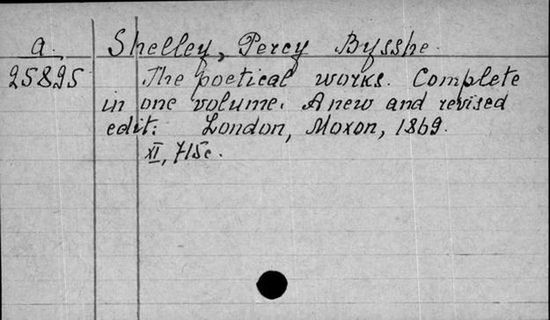 a. Shelley, Percy Bysshe.
25895 The poetical works. Complete
in one volume. A new and revised
edit: London, Moxon, 1869.
XI, 715c.